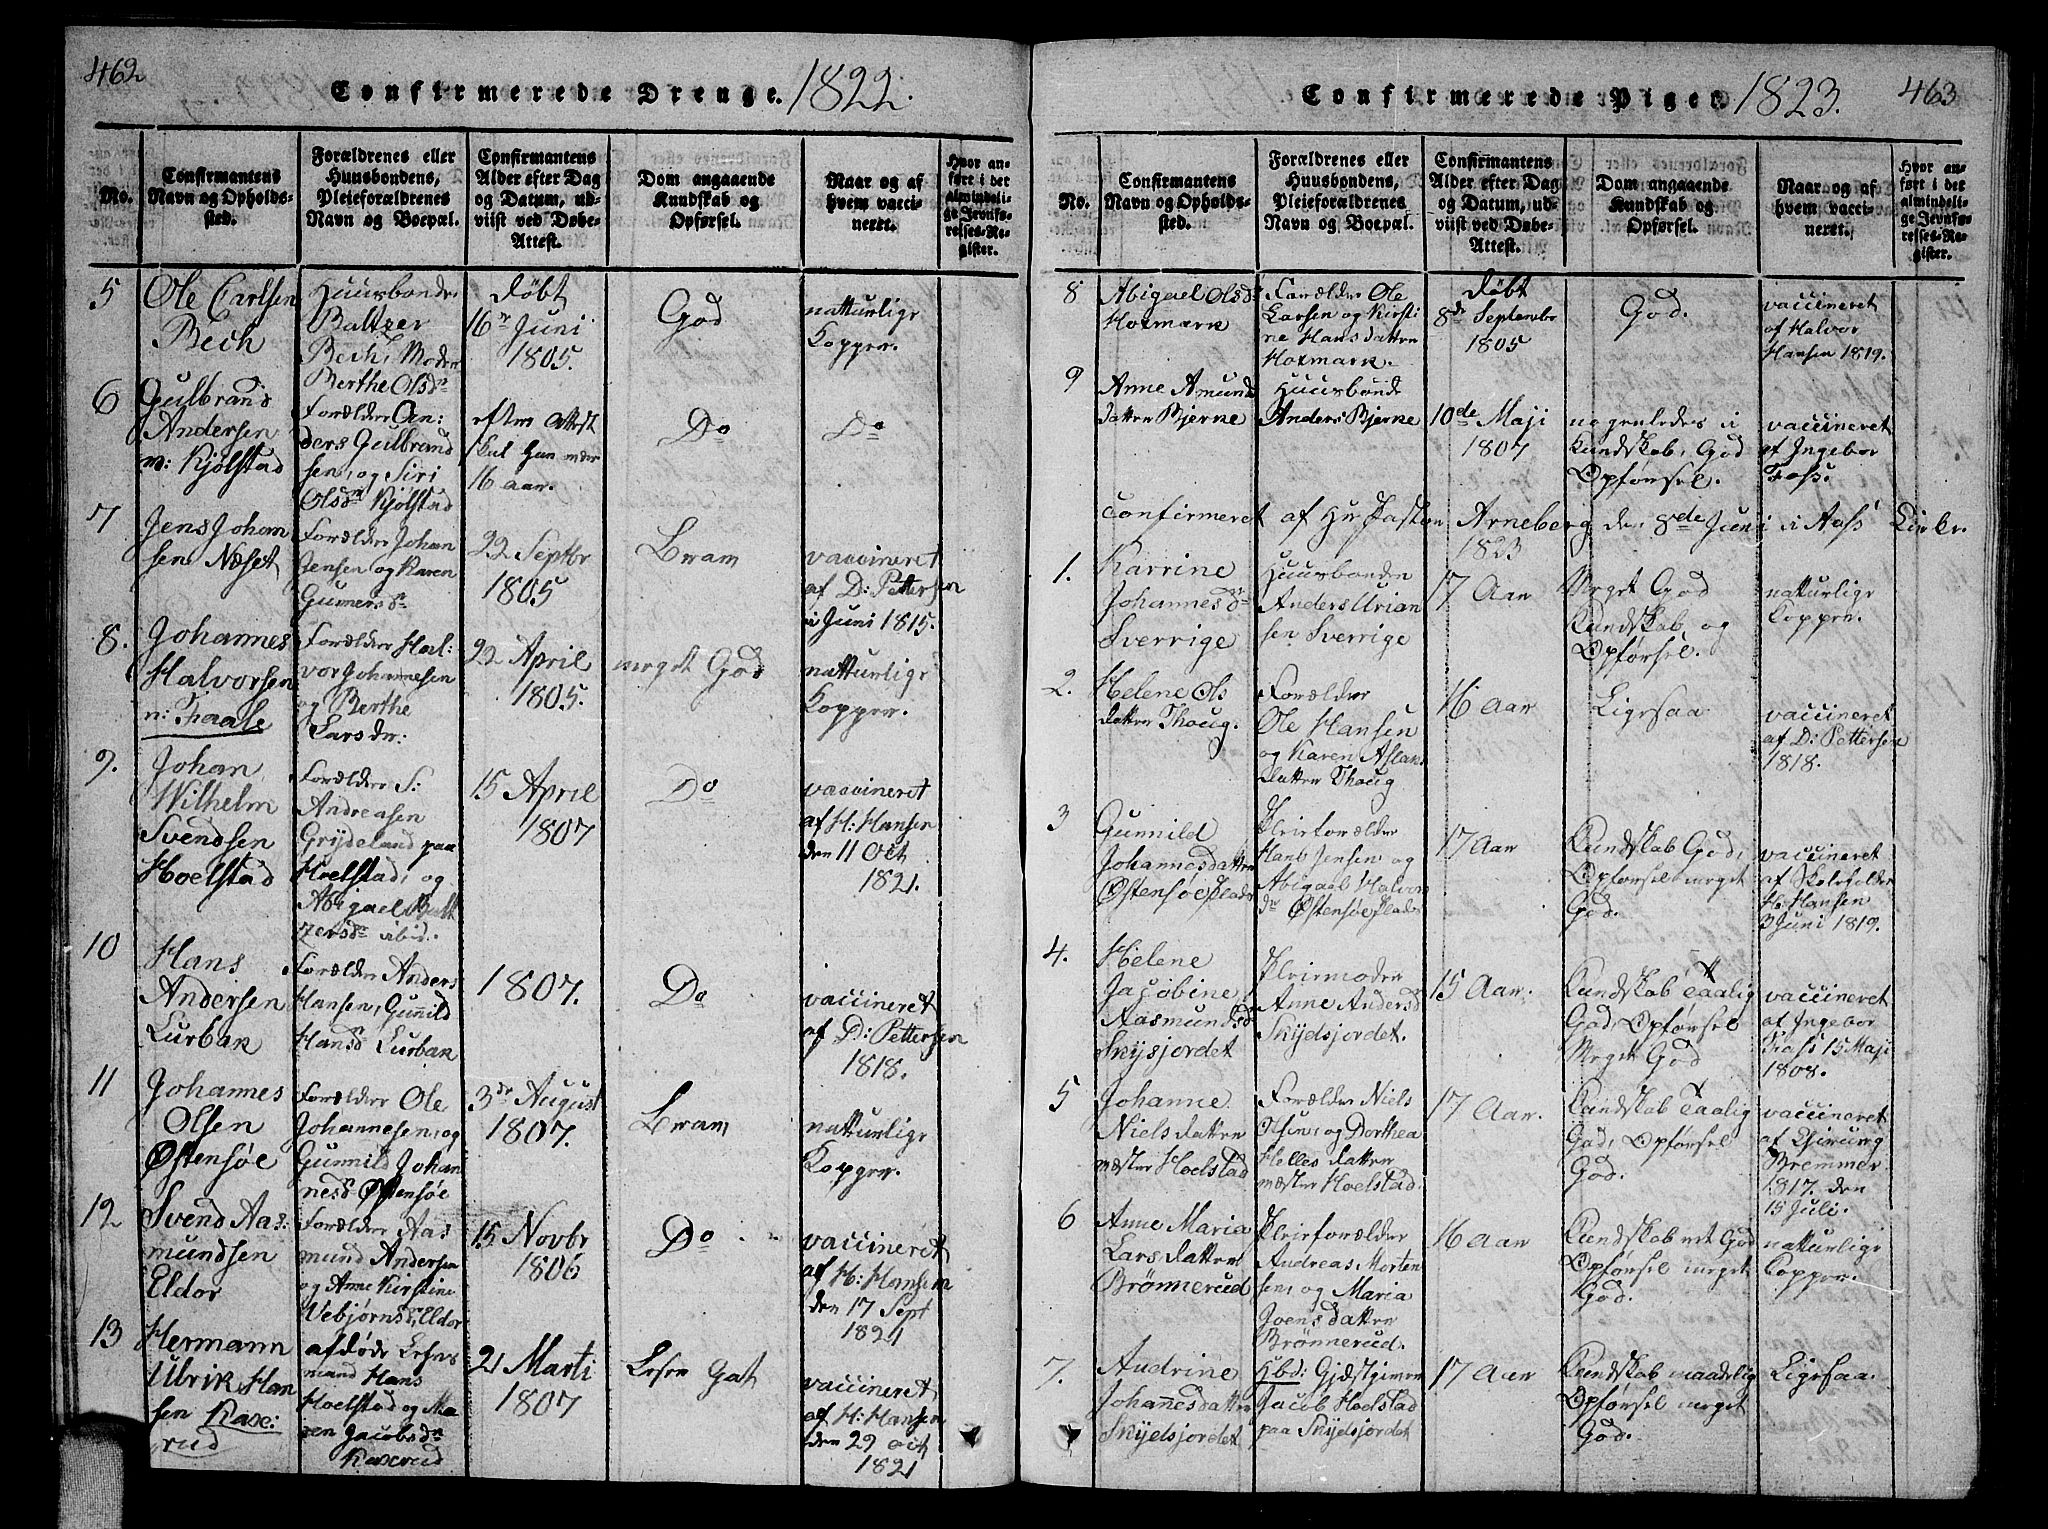 462
Confirmerede Drenge. 1822.
No.
Confirmantens
Navn og Opholds-
sted.
Forældrenes eller
Huusbondens,
Pleieforældrenes
Navn og Boepæl.
Confirmantens
Alder efter Dag
og Datum, ud-
viist ved Døbe-
Attest.
Dom angaaende
Kundskab og
Opførsel.
Naar og af
hvem vacci-
neret.
Hvor an-
ført i det
almindeli-
ge Jevnfø-
relses-Re-
gister.
5
Ole Carlsen
Bech
Huusbonde
Baltzer
Bech, Moder
Berthe Olsdr
døbt
16de Juni
1805.
God
natturlige
Kopper.
6
Gulbrand
Andersen
n: Kjølstad
Forældre An:
ders Gulbrand
sen, og Siri
Olsdr Kjølstad
efter Attest
skal han være
16 aar.
Do
Do
7
Jens Johan
sen Næset
Forældre Johan
Jensen og Karen
Gumersdr
22 Septbr
1805
Bram
vaccineret
af D: Pettersen
i Juni 1815.
8.
Johannes
Halvorsen
n: Faale
Forældre Hal:
vor Johannesen
og Berthe
Larsdr:
22 April
1805.
meget God
natturlige
Kopper.
9.
Johan
Wilhelm
Svendsen
Hoelstad
Forældre S:
Andreasen
Grydeland paa
Hoelstad, og
Abigael Balt
zersdr ibid.
15 April
1807
Do
vaccineret
af H: Hansen
den 11 Oct
1821.
10
Hans
Andersen
Lurbak
Forældre Anders
Hansen, Gunild
Hansd Lurbak
1807.
Do
vaccineret
af D: Pettersen
1818.
11
Johannes
Olsen
Østensøe
Forældre Ole
Johannesen, og
Gunnild Johan
nesd Østensøe
3de August
1807.
Bram
natturlige
Kopper.
12
Svend Aas:
mundsen
Eldor
Forældre Aas
mund Andersen
og Anne Kirstine
Vebjørnsd, Eldor
15 Novbr
1806
Do
vaccineret
af H: Hansen
den 17 Sept
1821
13
Hermann
Ulrik Han
sen Raxe:
rud
afdøde Lehns
mand Hans
Hoelstad og Ma
ren Jacobsdr
Raxerud
21 Marti
1807
vaccineret
af H: Hansen
den 29 oct
1821
Confirmerede Piger. 1823.
463
No.
Confirmantens
Navn og Opholds-
sted.
Forældrenes eller
Huusbondens,
Pleieforældrenes
Navn og Boepæl.
Confirmantens
Alder efter Dag
og Datum, ud-
viist ved Døbe-
Attest.
Dom angaaende
Kundskab og
Opførsel.
Naar og af
hvem vacci-
neret.
Hvor an-
ført i det
almindeli-
ge Jevnfø-
relses-Re-
gister.
8
Abigael Olsd:
Hoxmark
Forældre Ole
Larsen og Kirsti
ne Hansdatter
Hoxmark.
døbt
8de Septembr
1805
God.
vaccineret
af Halvor
Hansen 1819.
9
Anne Amund
datter Bjerne
Huusbonde
Anders Bjerne
10de Maji
1807
nogenledes i
Kundskab, God
Opførsel.
vaccineret
af Ingebor
Foss.
confirmeret af Hr Pastor Arneberg den 8de Juni i Aass Kirke.
1823
1.
Karrine
Johannesdr
Sverrige
Huusbonde
Anders Urian
sen Sverrige
17 Aar
Meget God
Kundskab og
Opførsel.
natturlige
Kopper.
2.
Helene Ols
datter Thoug.
Forældre
Ole Hansen
og Karen Aslaks
datter Thoug
16 Aar
Ligesaa
vaccineret
af D: Pettersen
1818.
3
Gunnild
Johannesdatter
Østensøe Plads
Pleieforældre
Hans Jensen og
Abigael Halvors
dr Østensøe Plads
17 Aar
Kundskab God,
Opførsel meget
God.
vaccineret
af Skoleholder
H: Hansen
3 Juni 1819.
4.
Helene
Jacobine
Aasmundsd
Skysjordet
Pleiemoder
Anne Andersdr
Skydsjordet.
15 Aar.
Kundskab Taalig
God, Opførsel
Meget God
vaccineret
af Ingebor
Foss 15 Maji
1808.
5
Johanne
Nielsdatter
mæster Hoelstad
Forældre Niels
Olsen, og Dorthea
Hellesdatter
mæster Hoelstad.
17 Aar.
Kundskab Taalig
God, Opførsel
God.
vaccineret
af
Bremmer
1817. den
15 Juli.
6
Anne Maria
Larsdatter
Brønnerud
Pleieforældre
Andreas Morten
sen, og Maria
Joensdatter
Brønnerud.
16 Aar
Kundskab ret God
Opførsel meget
God.
natturlige
Kopper.
7.
Audrine
Johannesdatter
Skydsjordet
Hbd: Gjæstgiver
Jacob Hoelstad
paa Skydsjordet
17 Aar
Kundskab maadelig
Opførsel meget
God.
Ligesaa.